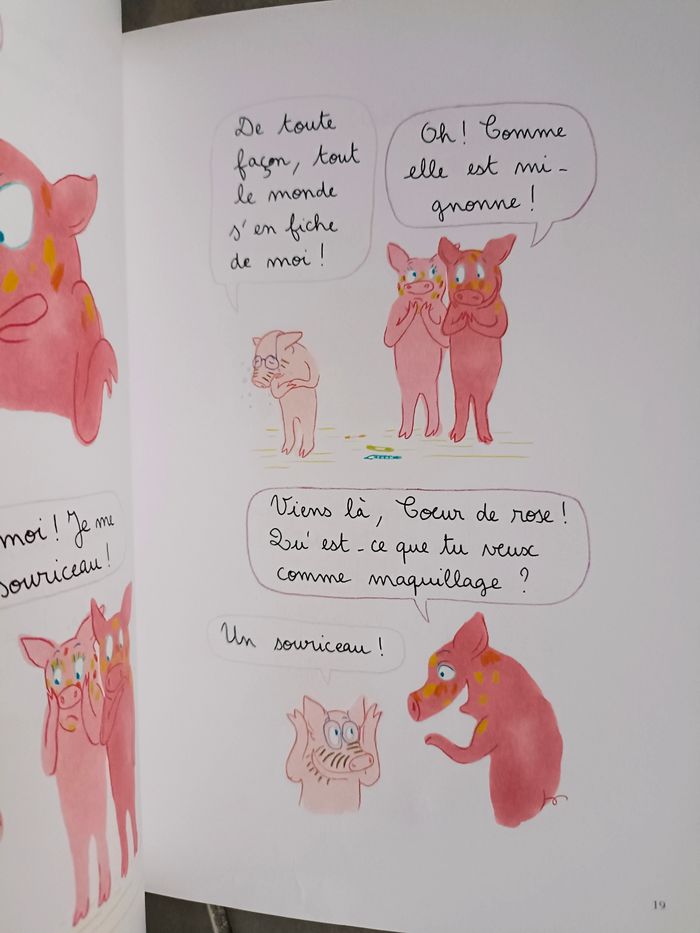 moi ! Je me
souriceau !
De toute
façon, tout
le monde
s'en fiche
de moi !
Oh ! Comme
elle est mi-
gnonne !
Viens là, Cœur de rose !
Qu'est-ce que tu veux
comme maquillage ?
Un souriceau !
19